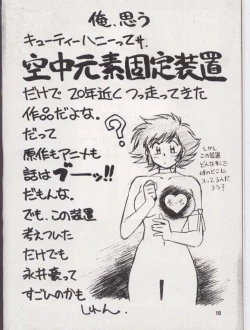 俺、思う
キューティーハニーってサ、
空中元素固定装置
だけで20年近くつっ走ってきた
作品だよな。
だって
原作もアニメも
話はブーッ!!
だもんな。
でも、この装置
考えついた
だけでも
永井豪って
すごいのかも
しれん。
?
しかし
この装置
どんな形で
体のどこに
入ってるんだ
ろう?